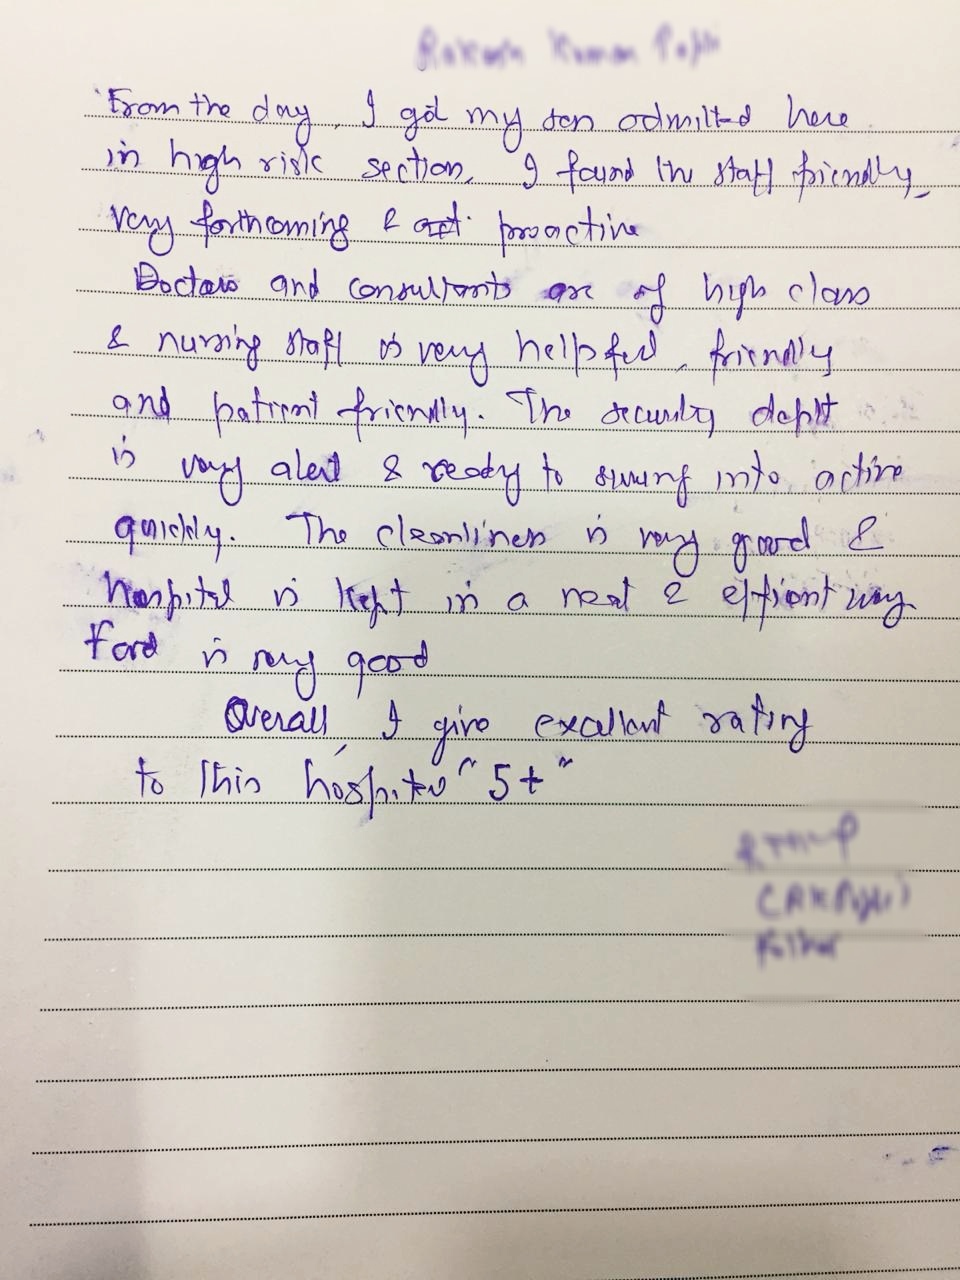 From the day, I got my son admitted here
in high risk section, I found the staff friendly,
very forthcoming & proactive
Doctors and consultants are of high class
& nursing staff is very helpful, friendly
and patient friendly. The security deptt
is very alert & ready to swung into active
quickly. The cleanliness is very good &
hospital is kept in a neat & effient way
Food is very good
Overall, I give excellant rating
to this hospital "5+"